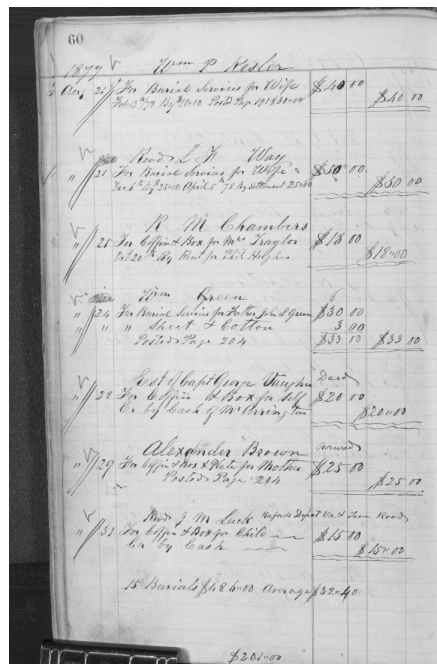 60
1877 Wm P Kesler
Aug 21 For Burial Services for Wife $40.00
Feb 13th 78 By 10.00 Posted Page 191 $30.00 $40.00
Revd L H Way
" 21 For Burial Services for Wife $50.00
Dec 6th By 25.00 April 5 78 By Settlement 25.00 $50.00
R M Chambers
" 25 For Coffin & Box for Mrs Traylor $18.00
Oct 20th By Rent for Phil Hughes $18.00
Wm Green
" 24 For Burial Services for Father John S Green $30.00
" " Sheet & Cotton 3 00
Posted Page 204 $33 00 $33.00
Est of Capt George Vaughn Decd
" 28 For Coffin & Box for Self $20.00
Cr by Cash of Mr Arrington $20.00
Alexander Brown
" 29 For Coffin & Box & Plate for Mother $25.00
Posted Page 204 $25.00
Revd J M Luck Bufords Depot Va & Tenn Road
" 31 For Coffin & Box for Child $15.00
Cr by Cash $15.00
15 Burials $486.00 Average $32.40
$201.00